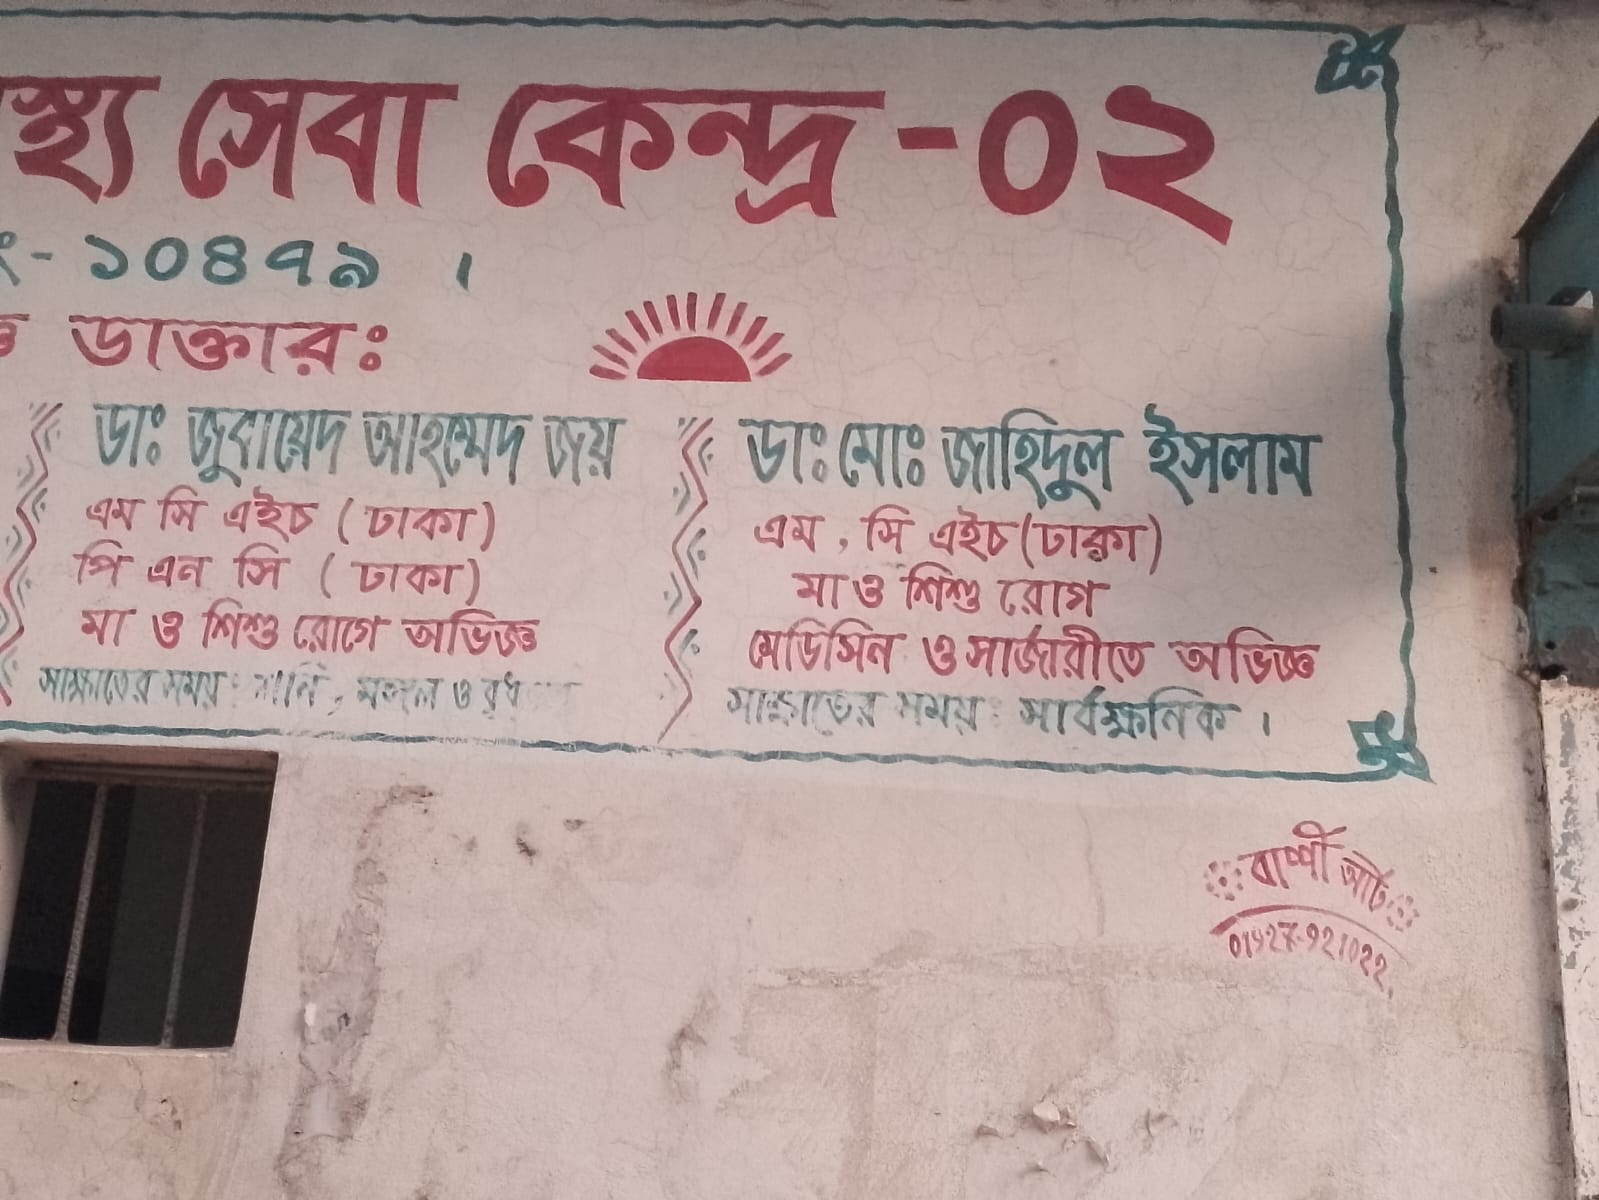 স্থ্য সেবা কেন্দ্র -০২
ং- ১০৪৭৯ ।
ডাক্তারঃ
ডাঃ জুবায়েদ আহম্মেদ জয়
এম সি এইচ (ঢাকা)
পি এন সি (ঢাকা)
মা ও শিশু রোগে অভিজ্ঞ
সাক্ষাতের সময়: শনি, মঙ্গল ও বুধ
ডাঃ মোঃ জাহিদুল ইসলাম
এম, সি এইচ (ঢাকা)
মা ও শিশু রোগ
মেডিসিন ও সার্জারীতে অভিজ্ঞ
সাক্ষাতের সময়: সার্বক্ষনিক ।
আর্ট
01927-921022